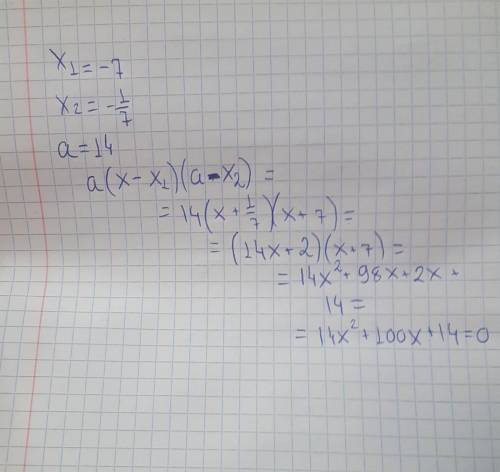 x₁ = -7
x₂ = -1/7
a = 14
a(x - x₁)(a - x₂) =
= 14(x + 1/7)(x + 7) =
= (14x + 2)(x + 7) =
= 14x² + 98x + 2x +
14 =
= 14x² + 100x + 14 = 0